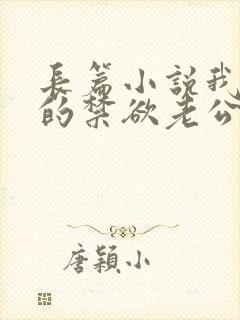 長篇小説我
的禁欲老公
唐穎小